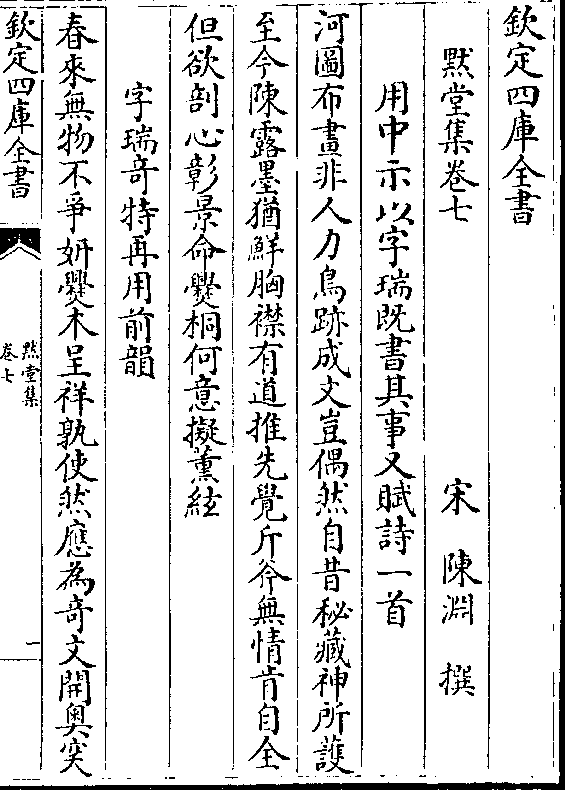 欽定四庫全書
默堂集卷七
宋 陳淵 撰
用中示以字瑞既書其事又賦詩一首
河圖布畫非人力鳥跡成文豈偶然自昔秘藏神所䕶
至今陳露墨猶鮮胸襟有道推先覺斤斧無情肯自全
但欲剖心彰景命㸑桐何意擬薰絃
字瑞奇特再用前韻
春來無物不爭妍㸑木呈祥孰使然應為奇文開奧突
欽定四庫全書
默堂集
卷七
一